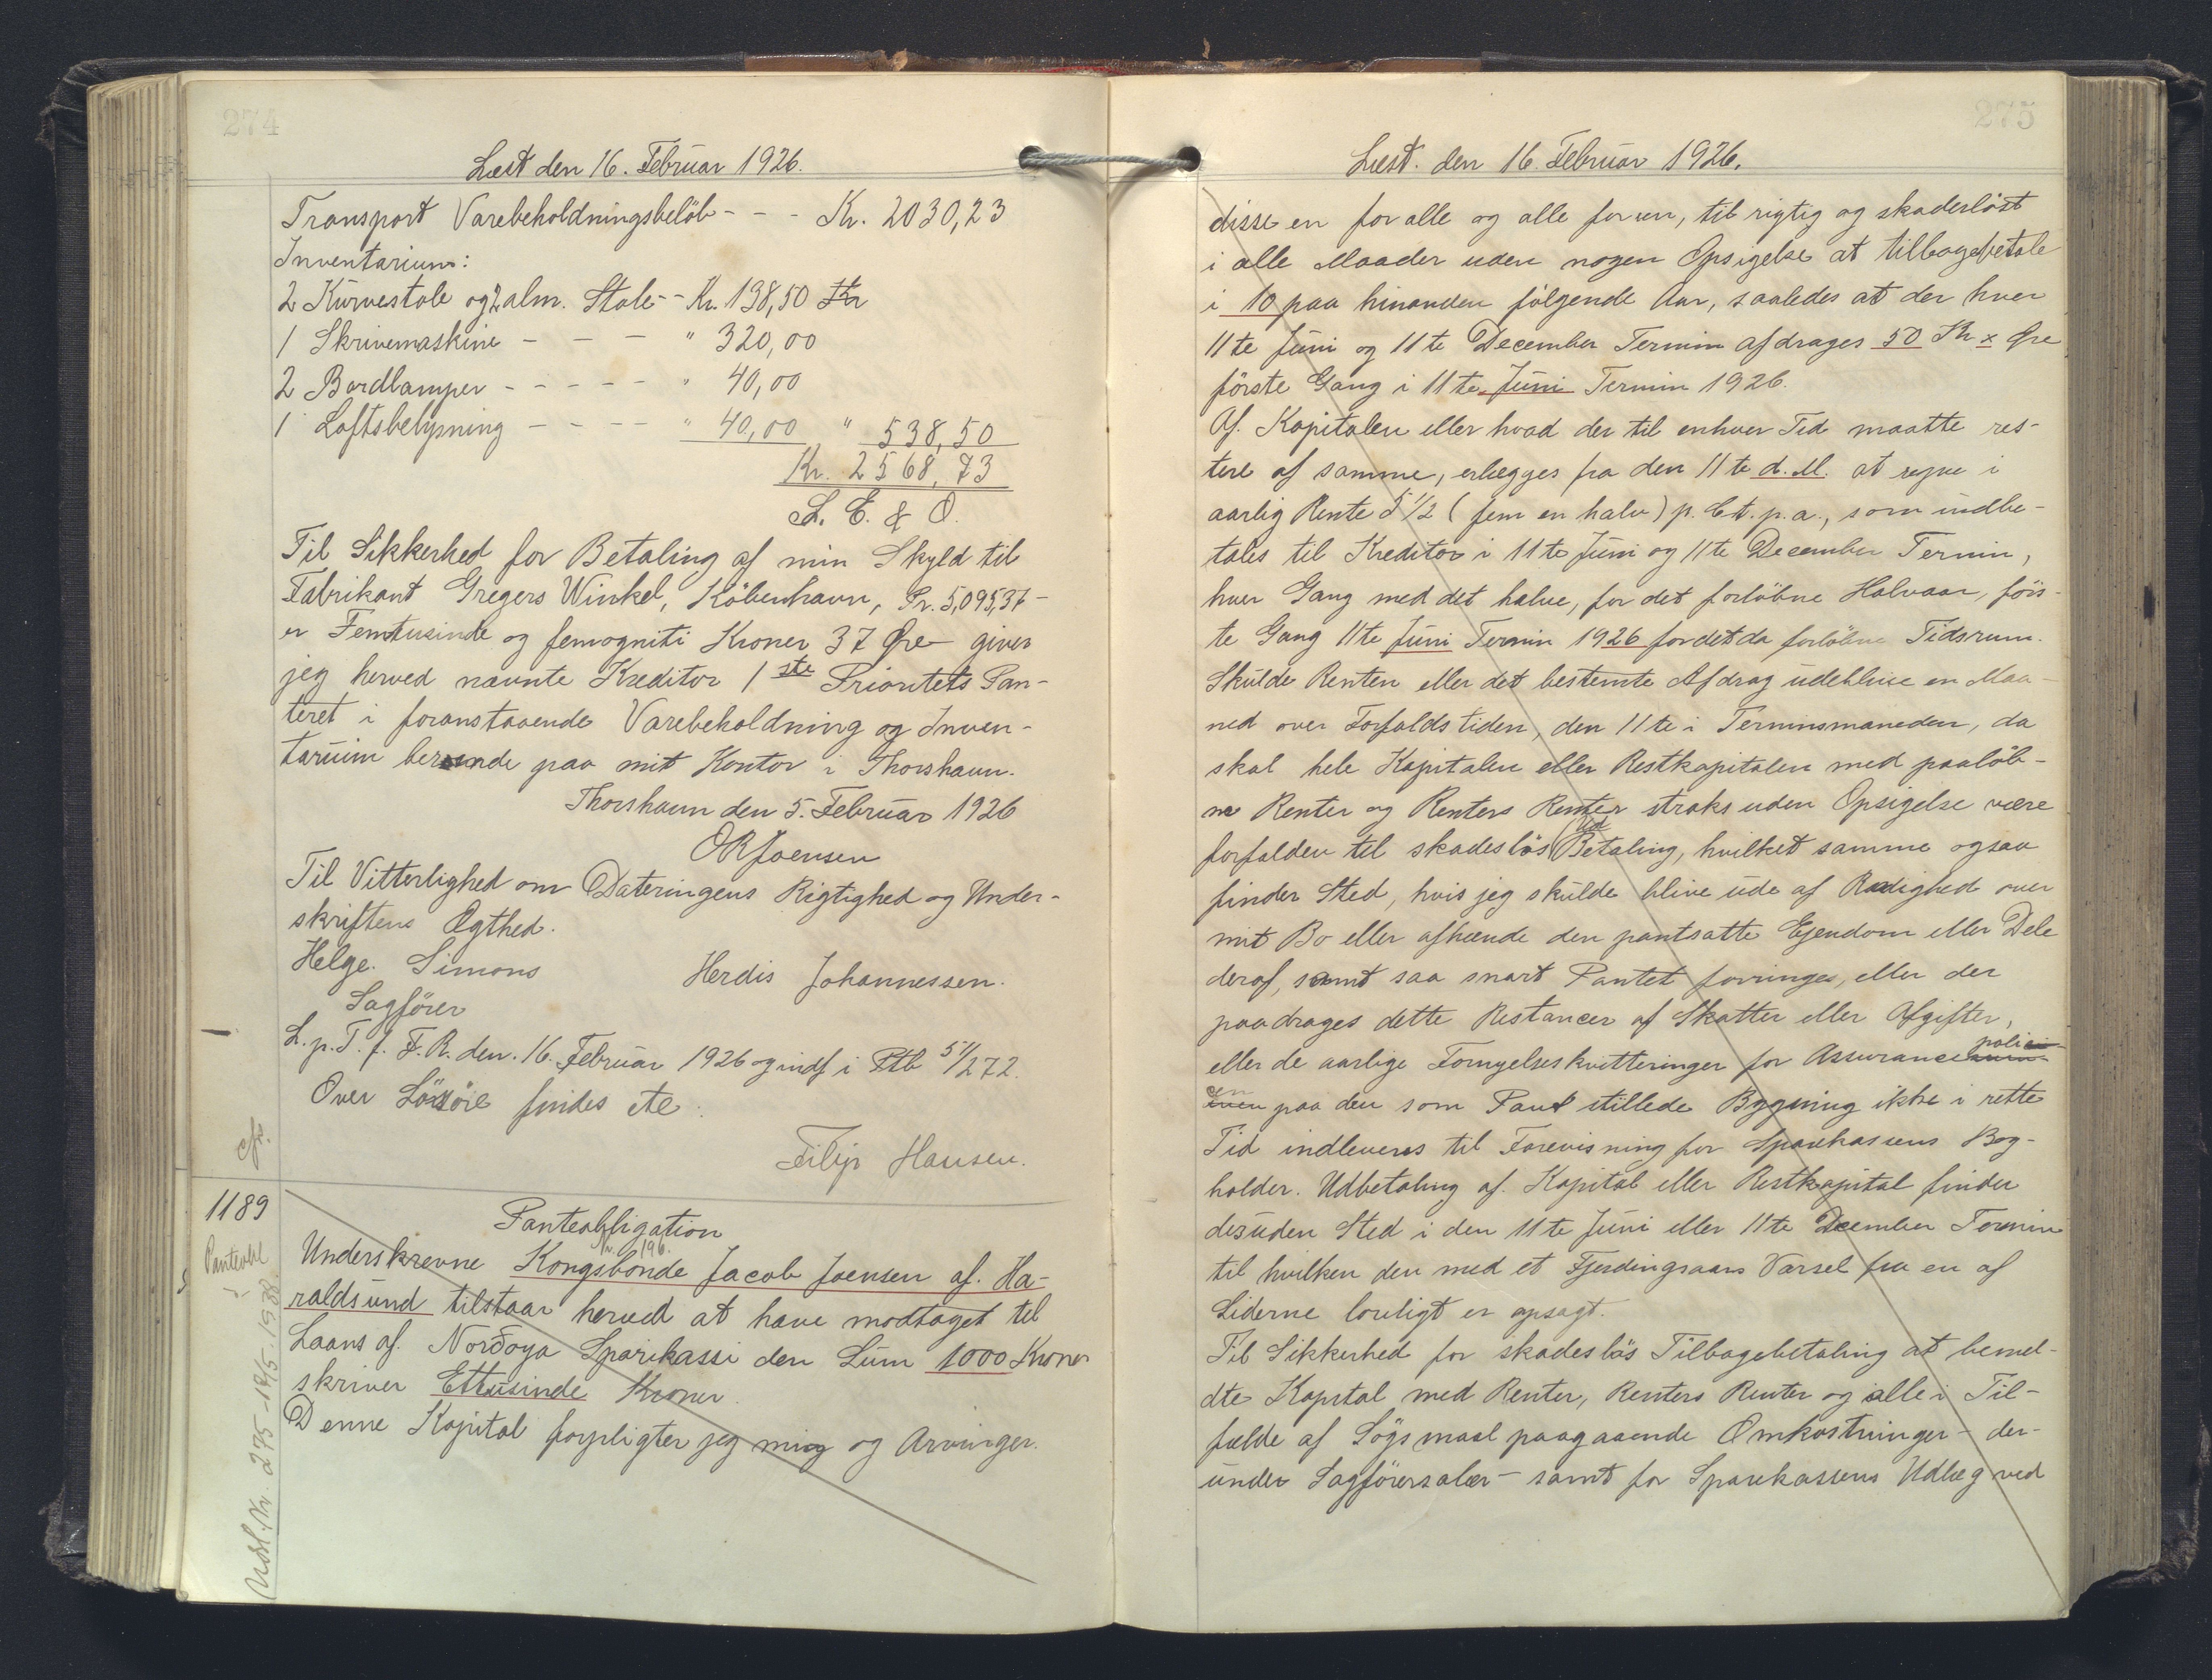 274
Læst den 16. Februar 1926.
Transport Varebeholdningsbelöb - - - Kr. 2030,23
Inventarium:
2 Kurvestole og 2 alm. Stole - - Kr. 138,50 Kr
1 Skrivemaskine - - - " 320,00
2 Bordlamper - - - - - " 40,00
1 Loftsbelysning - - - - " 40,00 " 538,50
Kr. 2568,73
S. E. & O.
Til Sikkerhed for Betaling af min Skyld til
Fabrikant Gregers Winkel, Köbenhavn, Kr. 5,095,37 -
er Femtusinde og femogniti Kroner 37 Øre - giver
jeg herved nævnte Kreditor 1ste Prioritets Pan-
teret i foranstaaende Varebeholdning og Inven-
tarium beroende paa mit Kontor i Thorshavn.
Thorshavn den 5. Februar 1926
OR Joensen
Til Vitterlighed om Dateringens Rigtighed og Under-
skriftens Ægthed.
Helge. Simons Herdis Johannessen.
Sagförer
L. p. T. f. F. R. den. 16. Februar 1926 og indf i Ptb 5/272.
Over Lösöre findes Ate.
Filip Hansen.
cfr.
1189
Panteobl
Udsl. Nr. 275 - 14/5. 1938.
Panteobligation
Nr. 196.
Underskrevne Kongsbonde Jacob Joensen af. Ha-
raldsund tilstaar herved at have modtaget til
Laans af. Norðoya Sparikassi den Sum 1000 Kroner
skriver Ettusinde Kroner.
Denne Kapital forpligter jeg mig og Arvinger.
275
Læst. den 16. Februar 1926.
disse en for alle og alle for en, til rigtig og skadeslöst
i alle Maader uden nogen Opsigelse at tilbagebetale
i 10 paa hinanden fölgende Aar, saaledes at der hver
11te Juni og 11te December Termin afdrages 50 Kr x Øre
förste Gang i 11te Juni Termin 1926.
Af. Kapitalen eller hvad der til enhver Tid maatte res-
tere af samme, erlægges fra den 11te d. M. at regne i
aarlig Rente 5 1/2 (fem en halv) p. Ct. p. a., som indbe-
tales til Kreditor i 11te Juni og 11te December Termin,
hver Gang med det halve, for det forlöbne Halvaar, förs-
te Gang 11te Juni Termin 1926 for det da forlöbne Tidsrum.
Skulde Renten eller det bestemte Afdrag udeblive en Maa-
ned over Forfaldstiden, den 11te i Terminsmaneden, da
skal hele Kapitalen eller Restkapitalen med paalöb-
ne Renter og Renters Renter straks uden Opsigelse være
forfalden til skadeslös (Ud Betaling, hvilket samme ogsaa
finder Sted, hvis jeg skulde blive ude af Raadighed over
mit Bo eller afhænde den pantsatte Ejendom eller Dele
deraf, samt saa snart Pantet forringes, eller der
paadrages dette Restancer af Skatter eller Afgifter,
eller de aarlige Fornyelseskvitteringer for Assurancepolicen
paa den som Pant stillede Bygning ikke i rette
Tid indleveres til Forevisning for Sparekassens Bog-
holder. Udbetaling af. Kapital eller Restkapital finder
desuden Sted i den 11te Juni eller 11te December Termin
til hvilken den med et Fjerdingsaars Varsel fra en af
Siderne lovligt er opsagt.
Til Sikkerhed for skadeslös Tilbagebetaling at bemel-
dte Kapital med Renter, Renters Renter og alle i Til-
fælde af Sögsmaal paagaaende Omkostninger - der-
under Sagförersalær - samt for Sparekassens Udlæg ved